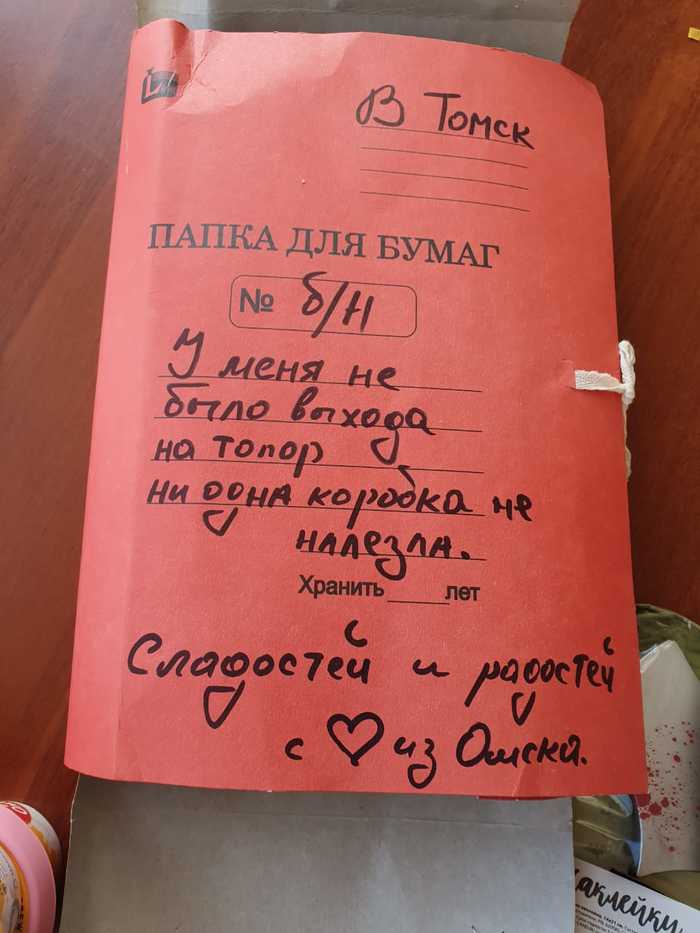 В Томск
ПАПКА ДЛЯ БУМАГ
№ б/н
У меня не
было выхода
на топор
ни одна коробка не
налезла.
Хранить _____ лет
Сладостей и радостей
с ♡ из Омска.
наклейки